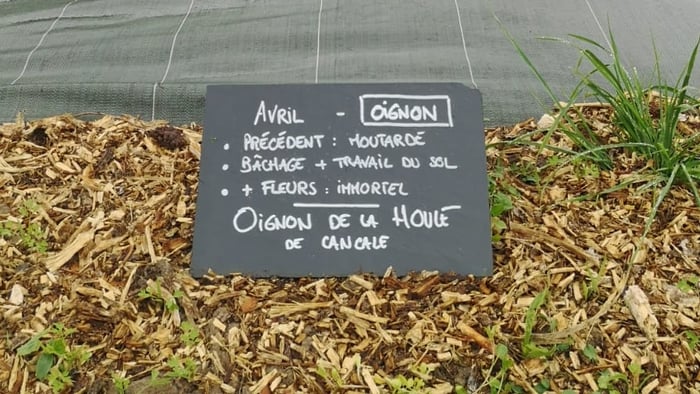 AVRIL - OIGNON
• PRÉCÉDENT : MOUTARDE
• BÂCHAGE + TRAVAIL DU SOL
• + FLEURS : IMMORTEL
OIGNON DE LA HOULE
DE CANCALE